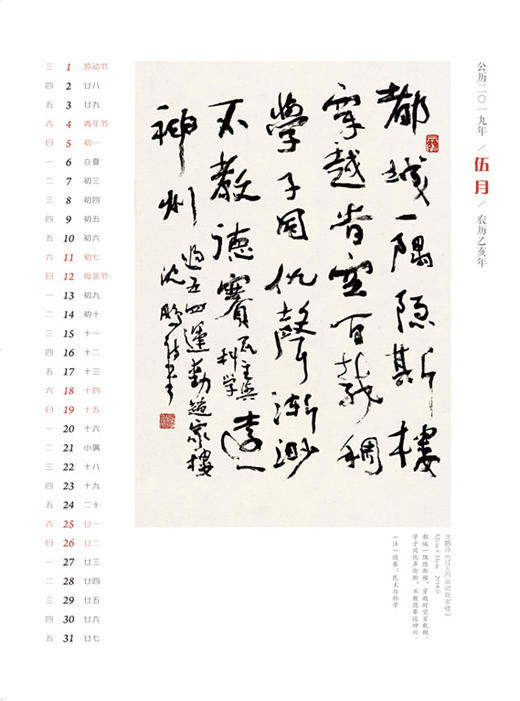 公历二〇一九年 / 伍月 / 农历乙亥年
都城一隅隐斯楼
穿越时空百载稠
學子同仇聲渐渺
不教德賽民主與科学遠
神州
过五四運動趙家樓
沈鹏
沈鹏诗《过五四运动赵家楼》
都城一隅隐斯楼，穿越时空百载稠。
学子同仇声渐渺，不教德赛远神州。
（注）德赛：民主与科学
三 1 劳动节
四 2 廿八
五 3 廿九
六 4 青年节
日 5 初一
一 6 立夏
二 7 初三
三 8 初四
四 9 初五
五 10 初六
六 11 初七
日 12 母亲节
一 13 初九
二 14 初十
三 15 十一
四 16 十二
五 17 十三
六 18 十四
日 19 十五
一 20 十六
二 21 小满
三 22 十八
四 23 十九
五 24 二十
六 25 廿一
日 26 廿二
一 27 廿三
二 28 廿四
三 29 廿五
四 30 廿六
五 31 廿七